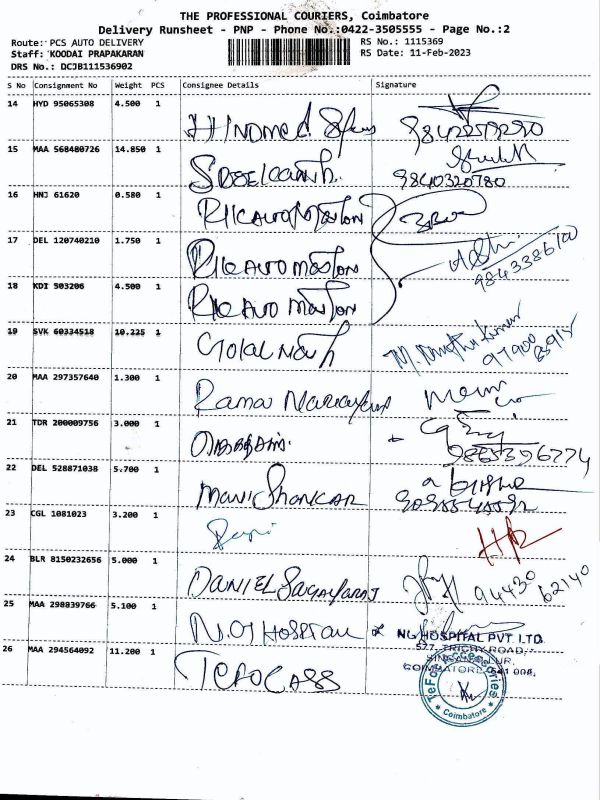 THE PROFESSIONAL COURIERS, Coimbatore
Delivery Runsheet - PNP - Phone No.:0422-3505555 - Page No.:2
Route: PCS AUTO DELIVERY
RS No.: 1115369
Staff: KOODAI PRAPAKARAN
RS Date: 11-Feb-2023
DRS No.: DCJB111536902
S No Consignment No Weight PCS Consignee Details Signature
14 HYD 95065308 4.500 1
15 MAA 568480726 14.850 1
9840320780
16 HNJ 61620 0.580 1
17 DEL 120740210 1.750 1 RK Auto Motion
9843386100
18 KDI 503206 4.500 1 RK Auto Motion
19 SVK 60334518 10.225 1
20 MAA 297357640 1.300 1 Rama
21 TDR 200009756 3.000 1
9865396774
22 DEL 528871038 5.700 1 Mani Shankar
23 CGL 1081023 3.200 1
24 BLR 8150232656 5.000 1 DANIEL Sagayaraj 94430 62140
25 MAA 298839766 5.100 1 N.G Hospital
NG HOSPITAL PVT. LTD.
577, TRICHY ROAD,
SINGANALLUR,
COIMBATORE - 641 005.
26 MAA 294564092 11.200 1
Coimbatore